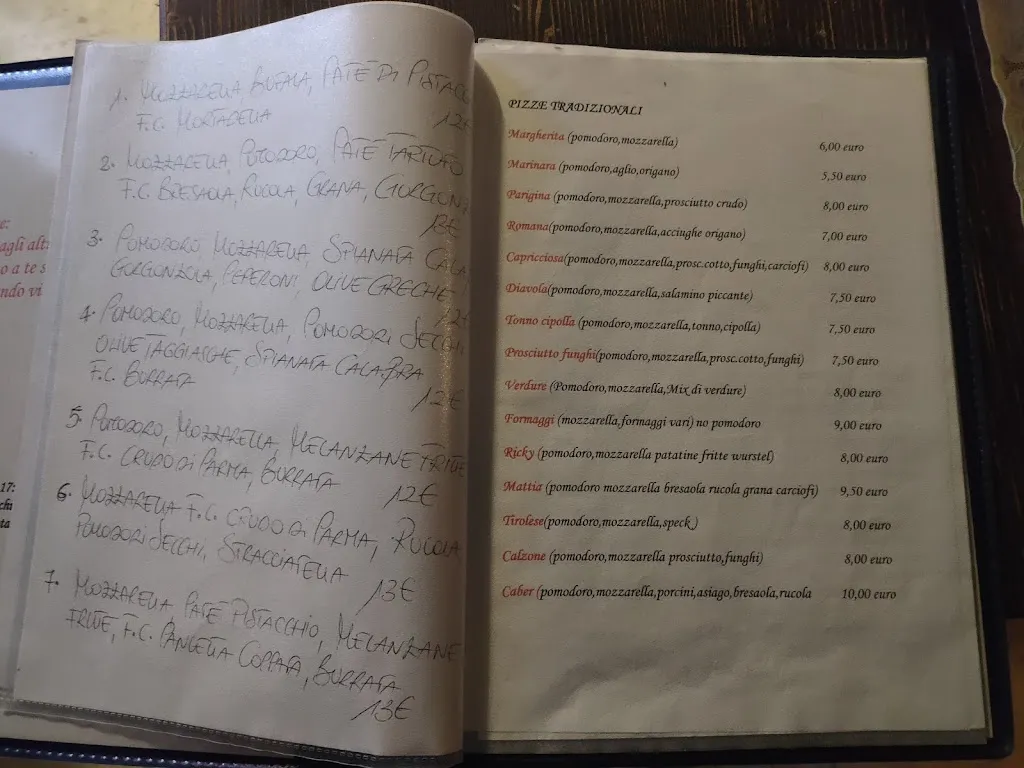 e:
agli alt
o a te s
ndo vi
17:
chi
ta
1. MOZZARELLA BUFALA, PATÈ DI PISTACC
F.C. MORTADELLA
12€
2. MOZZARELLA POMODORO, PATE TARTUFO
F.C. BRESAOLA, RUCOLA, GRANA, GORGON
13€
3. POMODORO, MOZZARELLA SPIANATA CALA
GORGONZOLA, PEPERONI, OLIVE GRECHE
12
4. POMODORO, MOZZARELLA, POMODORI SECCHI
OLIVE TAGGIASCHE, SPIANATA CALABRA
F.C. BURRATA
12€
5. POMODORO, MOZZARELLA, MELANZANE FRITTE
F.C. CRUDO DI PARMA, BURRATA
12€
6. MOZZARELLA F.C. CRUDO DI PARMA, RUCOLA
POMODORI SECCHI, STRACCIATELLA
13€
7. MOZZARELLA PATE PISTACCHIO, MELANZANE
FRITTE, F.C. PANCETTA COPPATA, BURRATA
13€
PIZZE TRADIZIONALI
Margherita (pomodoro,mozzarella) 6,00 euro
Marinara (pomodoro,aglio,origano) 5,50 euro
Parigina (pomodoro,mozzarella,prosciutto crudo) 8,00 euro
Romana(pomodoro,mozzarella,acciughe origano) 7,00 euro
Capricciosa(pomodoro,mozzarella,prosc.cotto,funghi,carciofi) 8,00 euro
Diavola(pomodoro,mozzarella,salamino piccante) 7,50 euro
Tonno cipolla (pomodoro,mozzarella,tonno,cipolla) 7,50 euro
Prosciutto funghi(pomodoro,mozzarella,prosc.cotto,funghi) 7,50 euro
Verdure (Pomodoro,mozzarella,Mix di verdure) 8,00 euro
Formaggi (mozzarella,formaggi vari) no pomodoro 9,00 euro
Ricky (pomodoro,mozzarella patatine fritte wurstel) 8,00 euro
Mattia (pomodoro mozzarella bresaola rucola grana carciofi) 9,50 euro
Tirolese(pomodoro,mozzarella,speck,) 8,00 euro
Calzone (pomodoro,mozzarella prosciutto,funghi) 8,00 euro
Caber (pomodoro,mozzarella,porcini,asiago,bresaola,rucola 10,00 euro